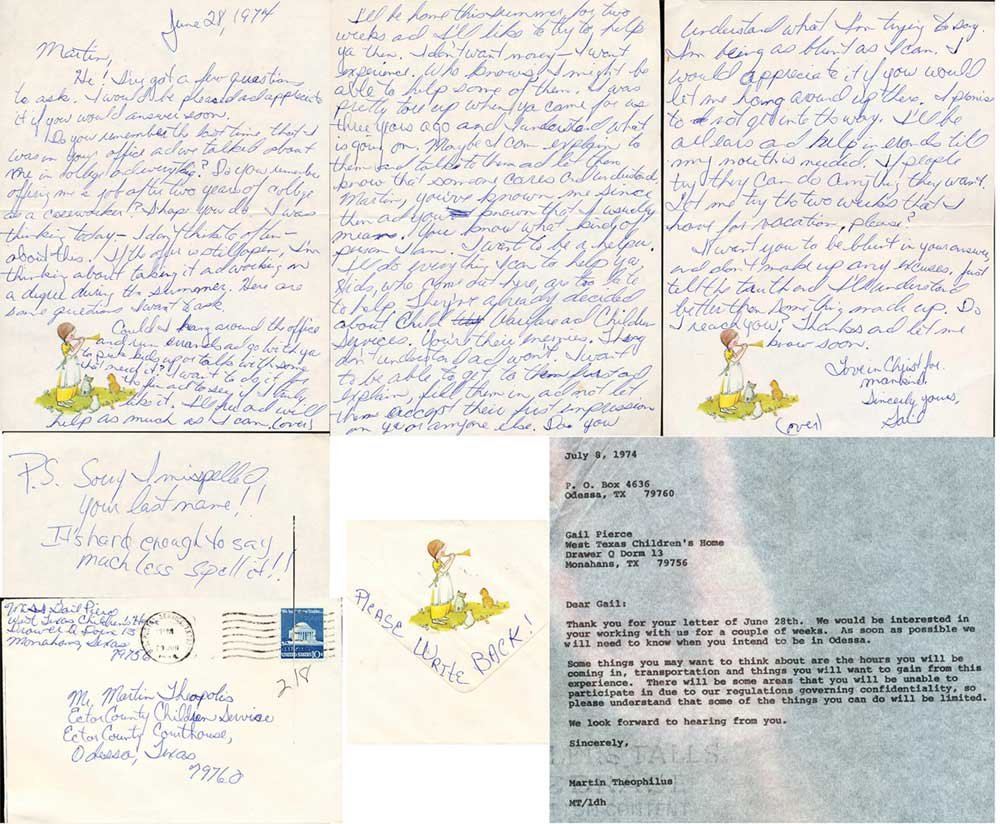 June 28, 1974
Martin,
Hi! I've got a few questions
to ask. I would be pleased ad appreciate
it if you would answer soon.
Do you remember the last time, that I
was in your office ad we talked about
me in college ad everything? Do you remember
offering me a job after two years of college
as a caseworker? I hope you do. I was
thinking today - I don't think to often -
about this. If the offer is still open, I'm
thinking about taking it ad working on
a degree during the summer. Here are
some questions I want to ask.
Could I hang around the office
and run errands ad go with ya
to pick kids up or talk with some
that need it? I want to do it for
the fun act to see if I truly
like it. I'll tried ad will
help as much as I can. (over)
I'll be home this summer for two
weeks ad I'll like to try to help
ya then. I don't want money - I want
experience. Who knows, I might be
able to help some of them. I was
pretty tore up when ya came for us
three years ago and I understand what
is going on. Maybe I can explain to
them and talk to them ad let them
know that someone cares and understand.
Martin, you've known me since
then ad you known that I usually
mean. You know what kind of
person I am. I want to be a helper.
I'll do everything I can to help ya
Kids, who come out here, are too late
to help. They've already decided
about Child Welfare ad Children
Services. You're their enemies. They
don't understand ad won't. I want
to be able to get to them first ad
explain, fill them in, ad not let
them accept their first impression
on ya or anyone else. Do you
understand what I'm trying to say.
I'm being as blunt as I can. I
would appreciate it if you would
let me hang around up there. I promise
to not get into the way. I'll be
all ears and help in errands till
my mouth is needed. If people
try they can do anything they want.
Let me try the two weeks that I
have for vacation, please?
I want you to be blunt in your answer
and don't make up any excuses, just
tell the truth and I'll understand
better than something made up. Do
I reach you? Thanks ad let me
know soon.
Love in Christ for
mankind,
Sincerely yours,
Gail
(over)
P.S. Sorry I misspelled
your last name!!
It's hard enough to say
much less spell it!!
Miss Gail Pierce
West Texas Children's Home
Drawer Q Dorm 13
Monahans, Texas
79756
10c
218
Mr. Martin Theopolis
Ector County Children Service
Ector County Courthouse,
Odessa, Texas
79762
PLEASE WRITE BACK!
July 8, 1974
P. O. Box 4636
Odessa, TX 79760
Gail Pierce
West Texas Children's Home
Drawer Q Dorm 13
Monahans, TX 79756
Dear Gail:
Thank you for your letter of June 28th. We would be interested in
your working with us for a couple of weeks. As soon as possible we
will need to know when you intend to be in Odessa.
Some things you may want to think about are the hours you will be
coming in, transportation and things you will want to gain from this
experience. There will be some areas that you will be unable to
participate in due to our regulations governing confidentiality, so
please understand that some of the things you can do will be limited.
We look forward to hearing from you.
Sincerely,
Martin Theophilus
MT/ldh